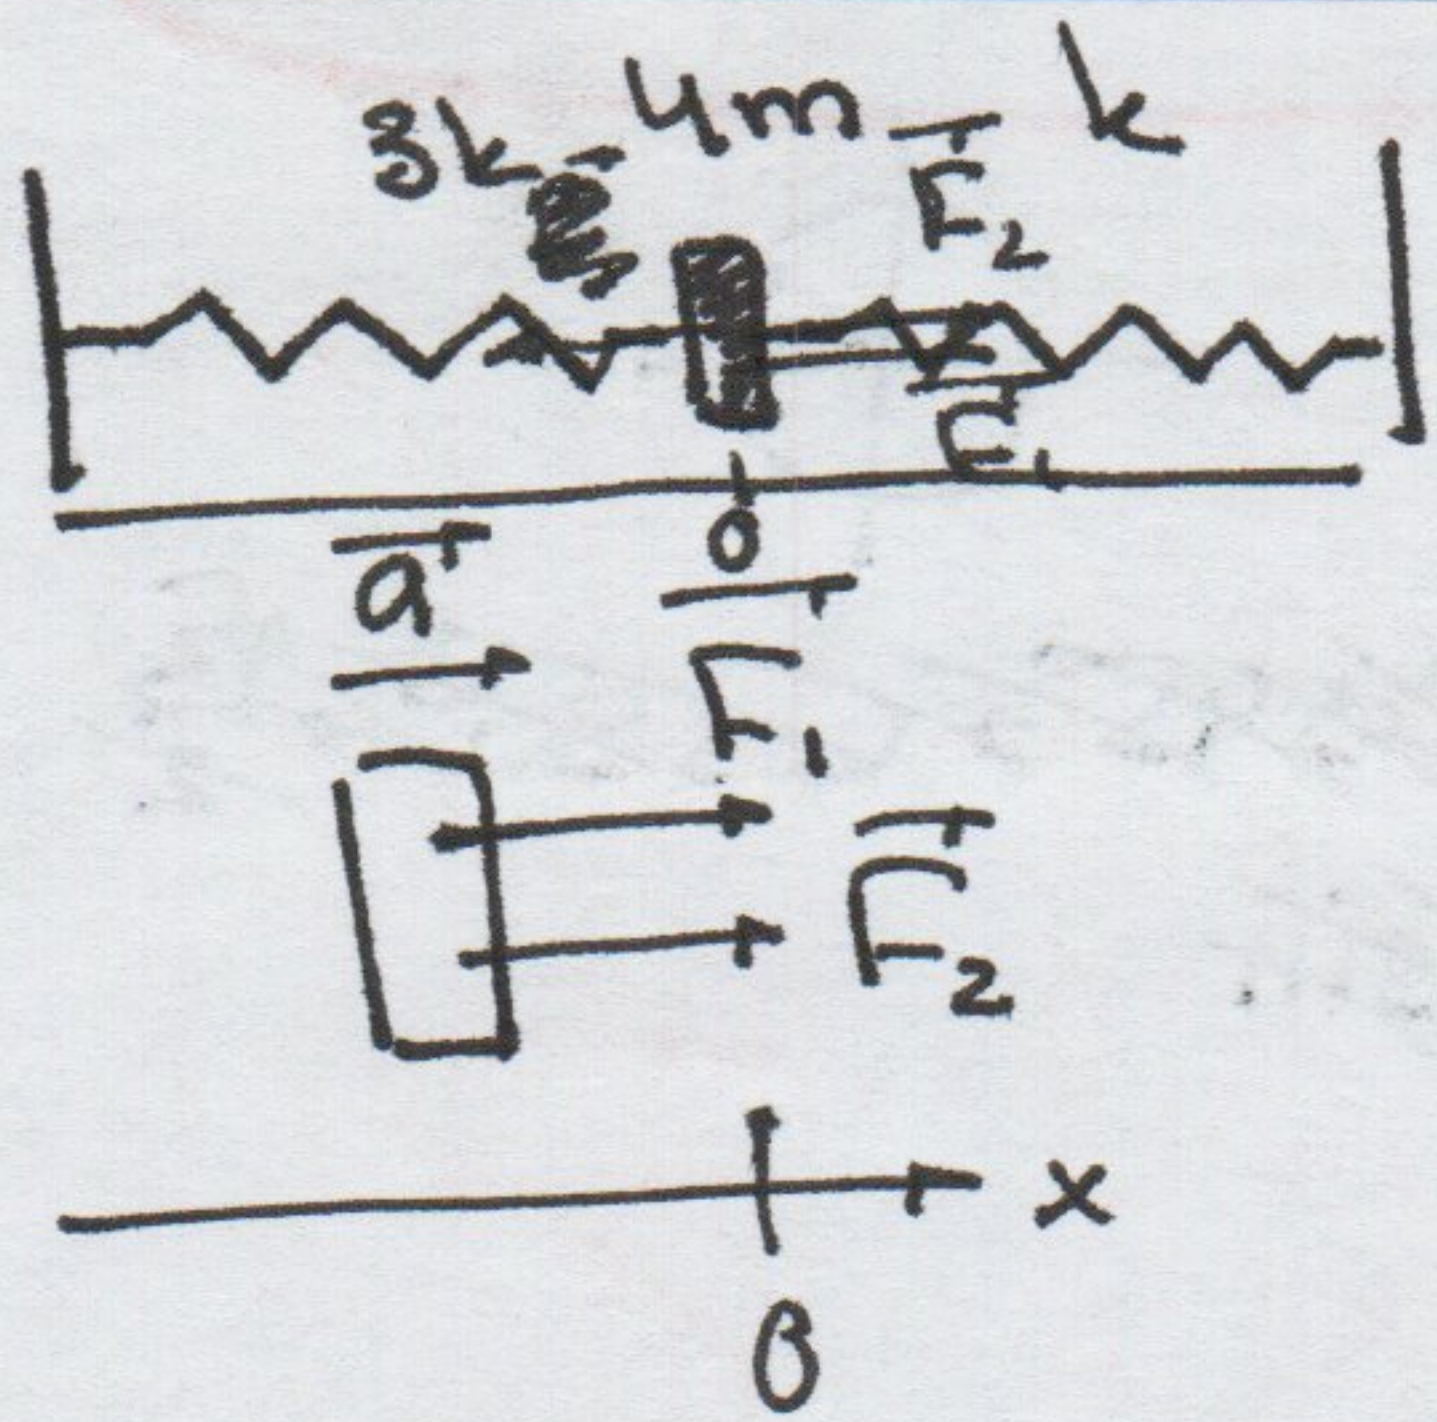 3k 4m k
F₂
F₁
0
a
F₁
F₂
x
0